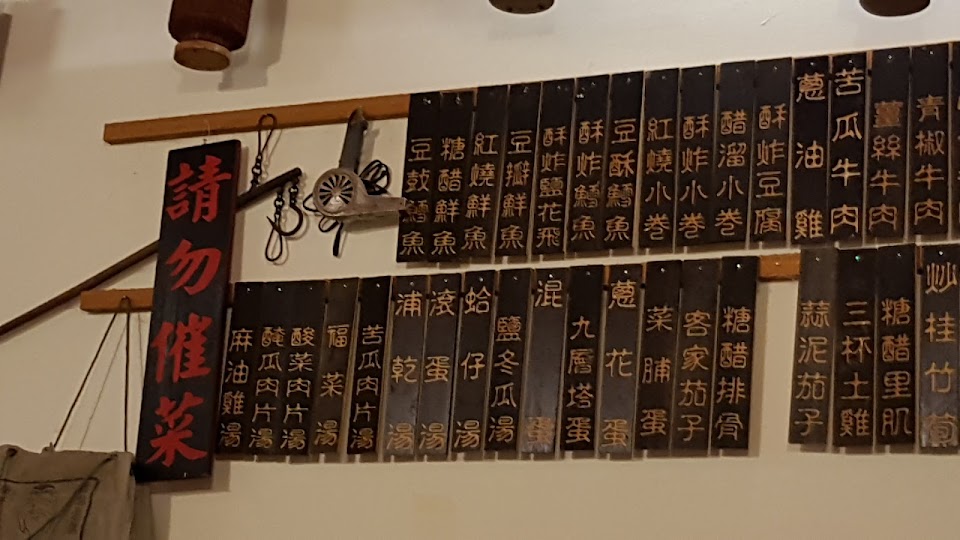 請勿催菜
青椒牛肉
薑絲牛肉
苦瓜牛肉
蔥油雞
酥炸豆腐
醋溜小卷
酥炸小卷
紅燒小卷
豆酥鱈魚
酥炸鱈魚
酥炸鹽花飛
豆瓣鮮魚
紅燒鮮魚
糖醋鮮魚
豆豉鱈魚
炒桂竹筍
糖醋里肌
三杯土雞
蒜泥茄子
糖醋排骨
客家茄子
菜脯蛋
蔥花蛋
九層塔蛋
混蛋
鹽冬瓜湯
蛤仔湯
滾蛋湯
浦乾湯
苦瓜肉片湯
福菜湯
酸菜肉片湯
醃瓜肉片湯
麻油雞湯